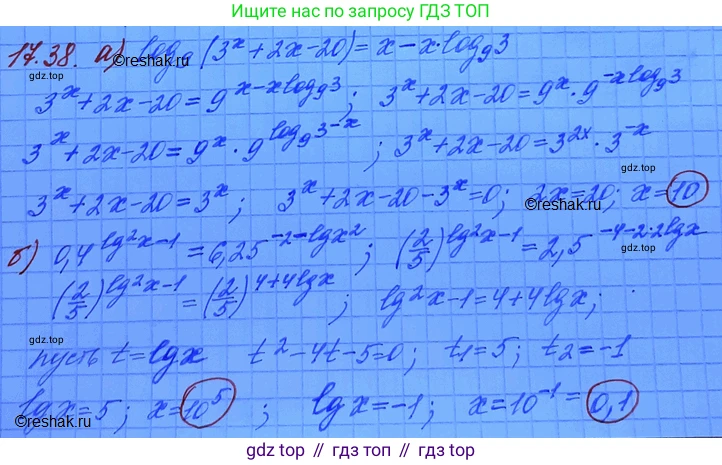 Ищите нас по запросу ГДЗ ТОП
17.38. а) log₉(3ˣ+2x-20)=x-x·log₉3
gdz.top
©reshak.ru
3ˣ+2x-20=9^(x-xlog₉3); 3ˣ+2x-20=9ˣ·9^(-xlog₉3)
3ˣ+2x-20=9ˣ·9^(log₉3^(-x)); 3ˣ+2x-20=3^(2x)·3^(-x)
gdz.top
3ˣ+2x-20=3ˣ; 3ˣ+2x-20-3ˣ=0; 2x=20; x=10
©reshak.ru
б) 0,4^(lg²x-1)=6,25^(-2-lgx²); (2/5)^(lg²x-1)=2,5^(-4-2·2lgx)
gdz.top
(2/5)^(lg²x-1)=(2/5)^(4+4lgx); lg²x-1=4+4lgx;
gdz.top
пусть t=lgx t²-4t-5=0; t₁=5; t₂=-1
lgx=5; x=10⁵; lgx=-1; x=10⁻¹=0,1
©reshak.ru
©reshak.ru
gdz.top // гдз.top // gdz.top // гдз.top